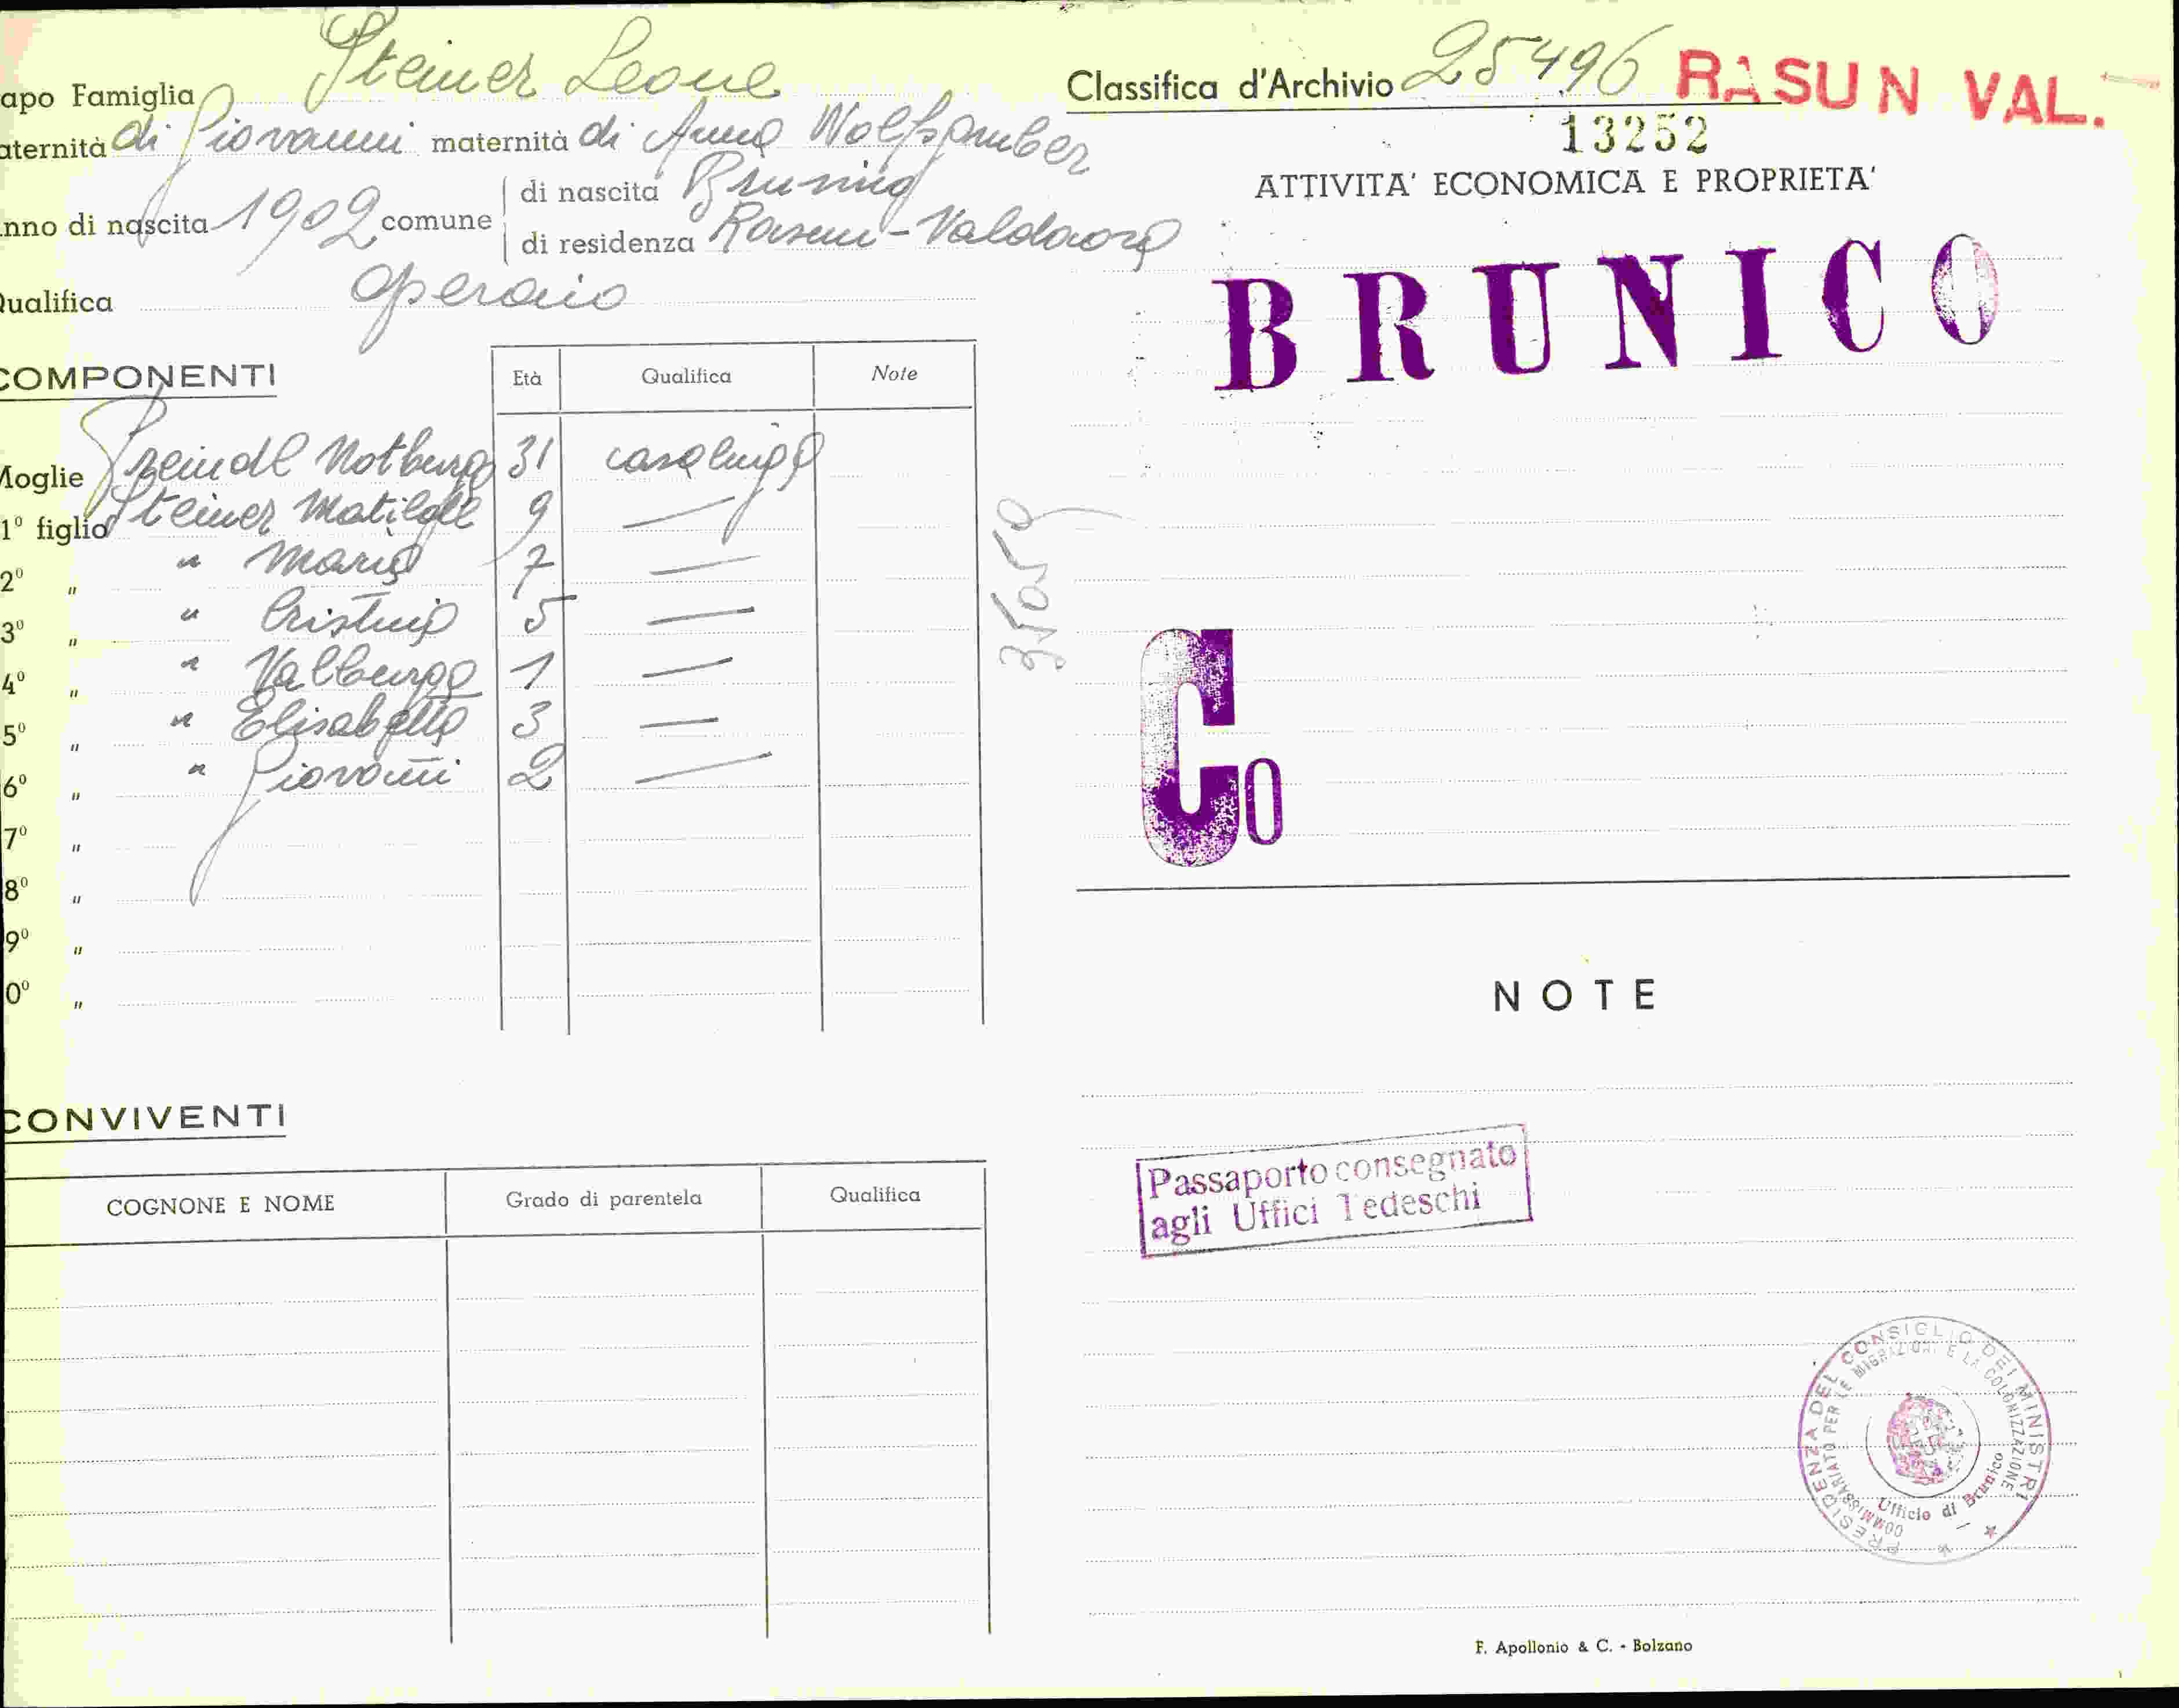 apo Famiglia Steiner Leone
aternità di Giovanni maternità di Anna Wolfsgruber
nno di nascita 1902 comune
di nascita
di residenza Rasun-Valdaora
Qualifica operaio
COMPONENTI
Età Qualifica Note
Moglie Preindl Notburga 31 casalinga
1° figlio Steiner Matilde 9 —
2° " " Maria 7 —
3° " " Cristina 5 —
4° " " Valburga 1 —
5° " " Elisabetta 3 —
6° " " Giovanni 2 —
7° "
8° "
9° "
0° "
CONVIVENTI
COGNONE E NOME Grado di parentela Qualifica
35059
Classifica d'Archivio 25496 RASUN VAL.
13252
ATTIVITA' ECONOMICA E PROPRIETA'
BRUNICO
Co
NOTE
Passaporto consegnato
agli Uffici Tedeschi
PRESIDENZA DEL CONSIGLIO DEI MINISTRI
COMMISSARIATO PER LE MIGRAZIONI E LA COLONIZZAZIONE
Ufficio di Brunico
F. Apollonio & C. - Bolzano